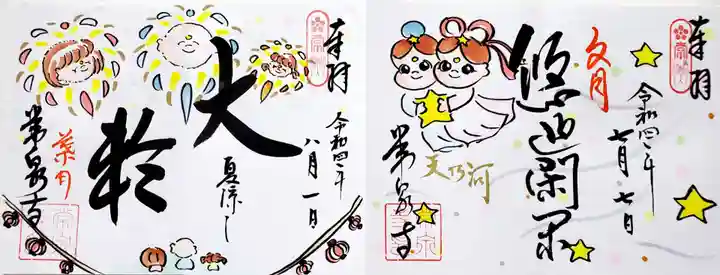 奉拝
令和四年
八月一日
大輪
夏涼し
葉月
常泉寺
奉拝
文月
令和四年
七月七日
天乃河
常泉寺